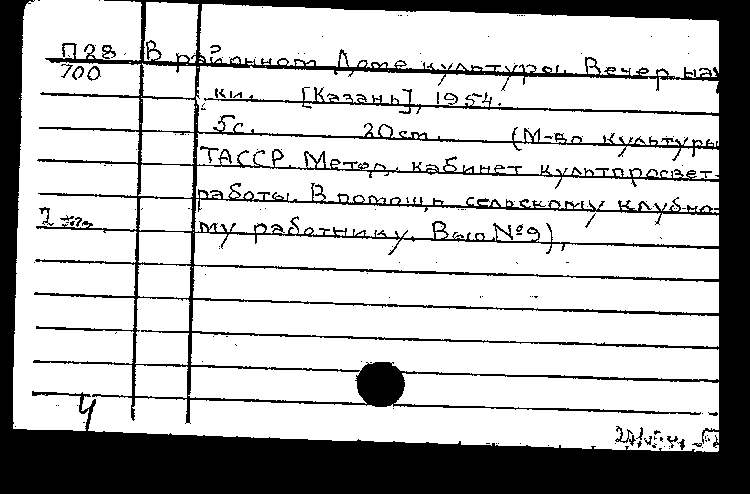 П28 В районном Доме культуры. Вечер нау
700
ки. [Казань], 1954.
5с. 20см. (М-во культуры
ТАССР. Метод. кабинет культпросвет-
работы. В помощь сельскому клубно-
му работнику. Вып. №9),
2
Ч